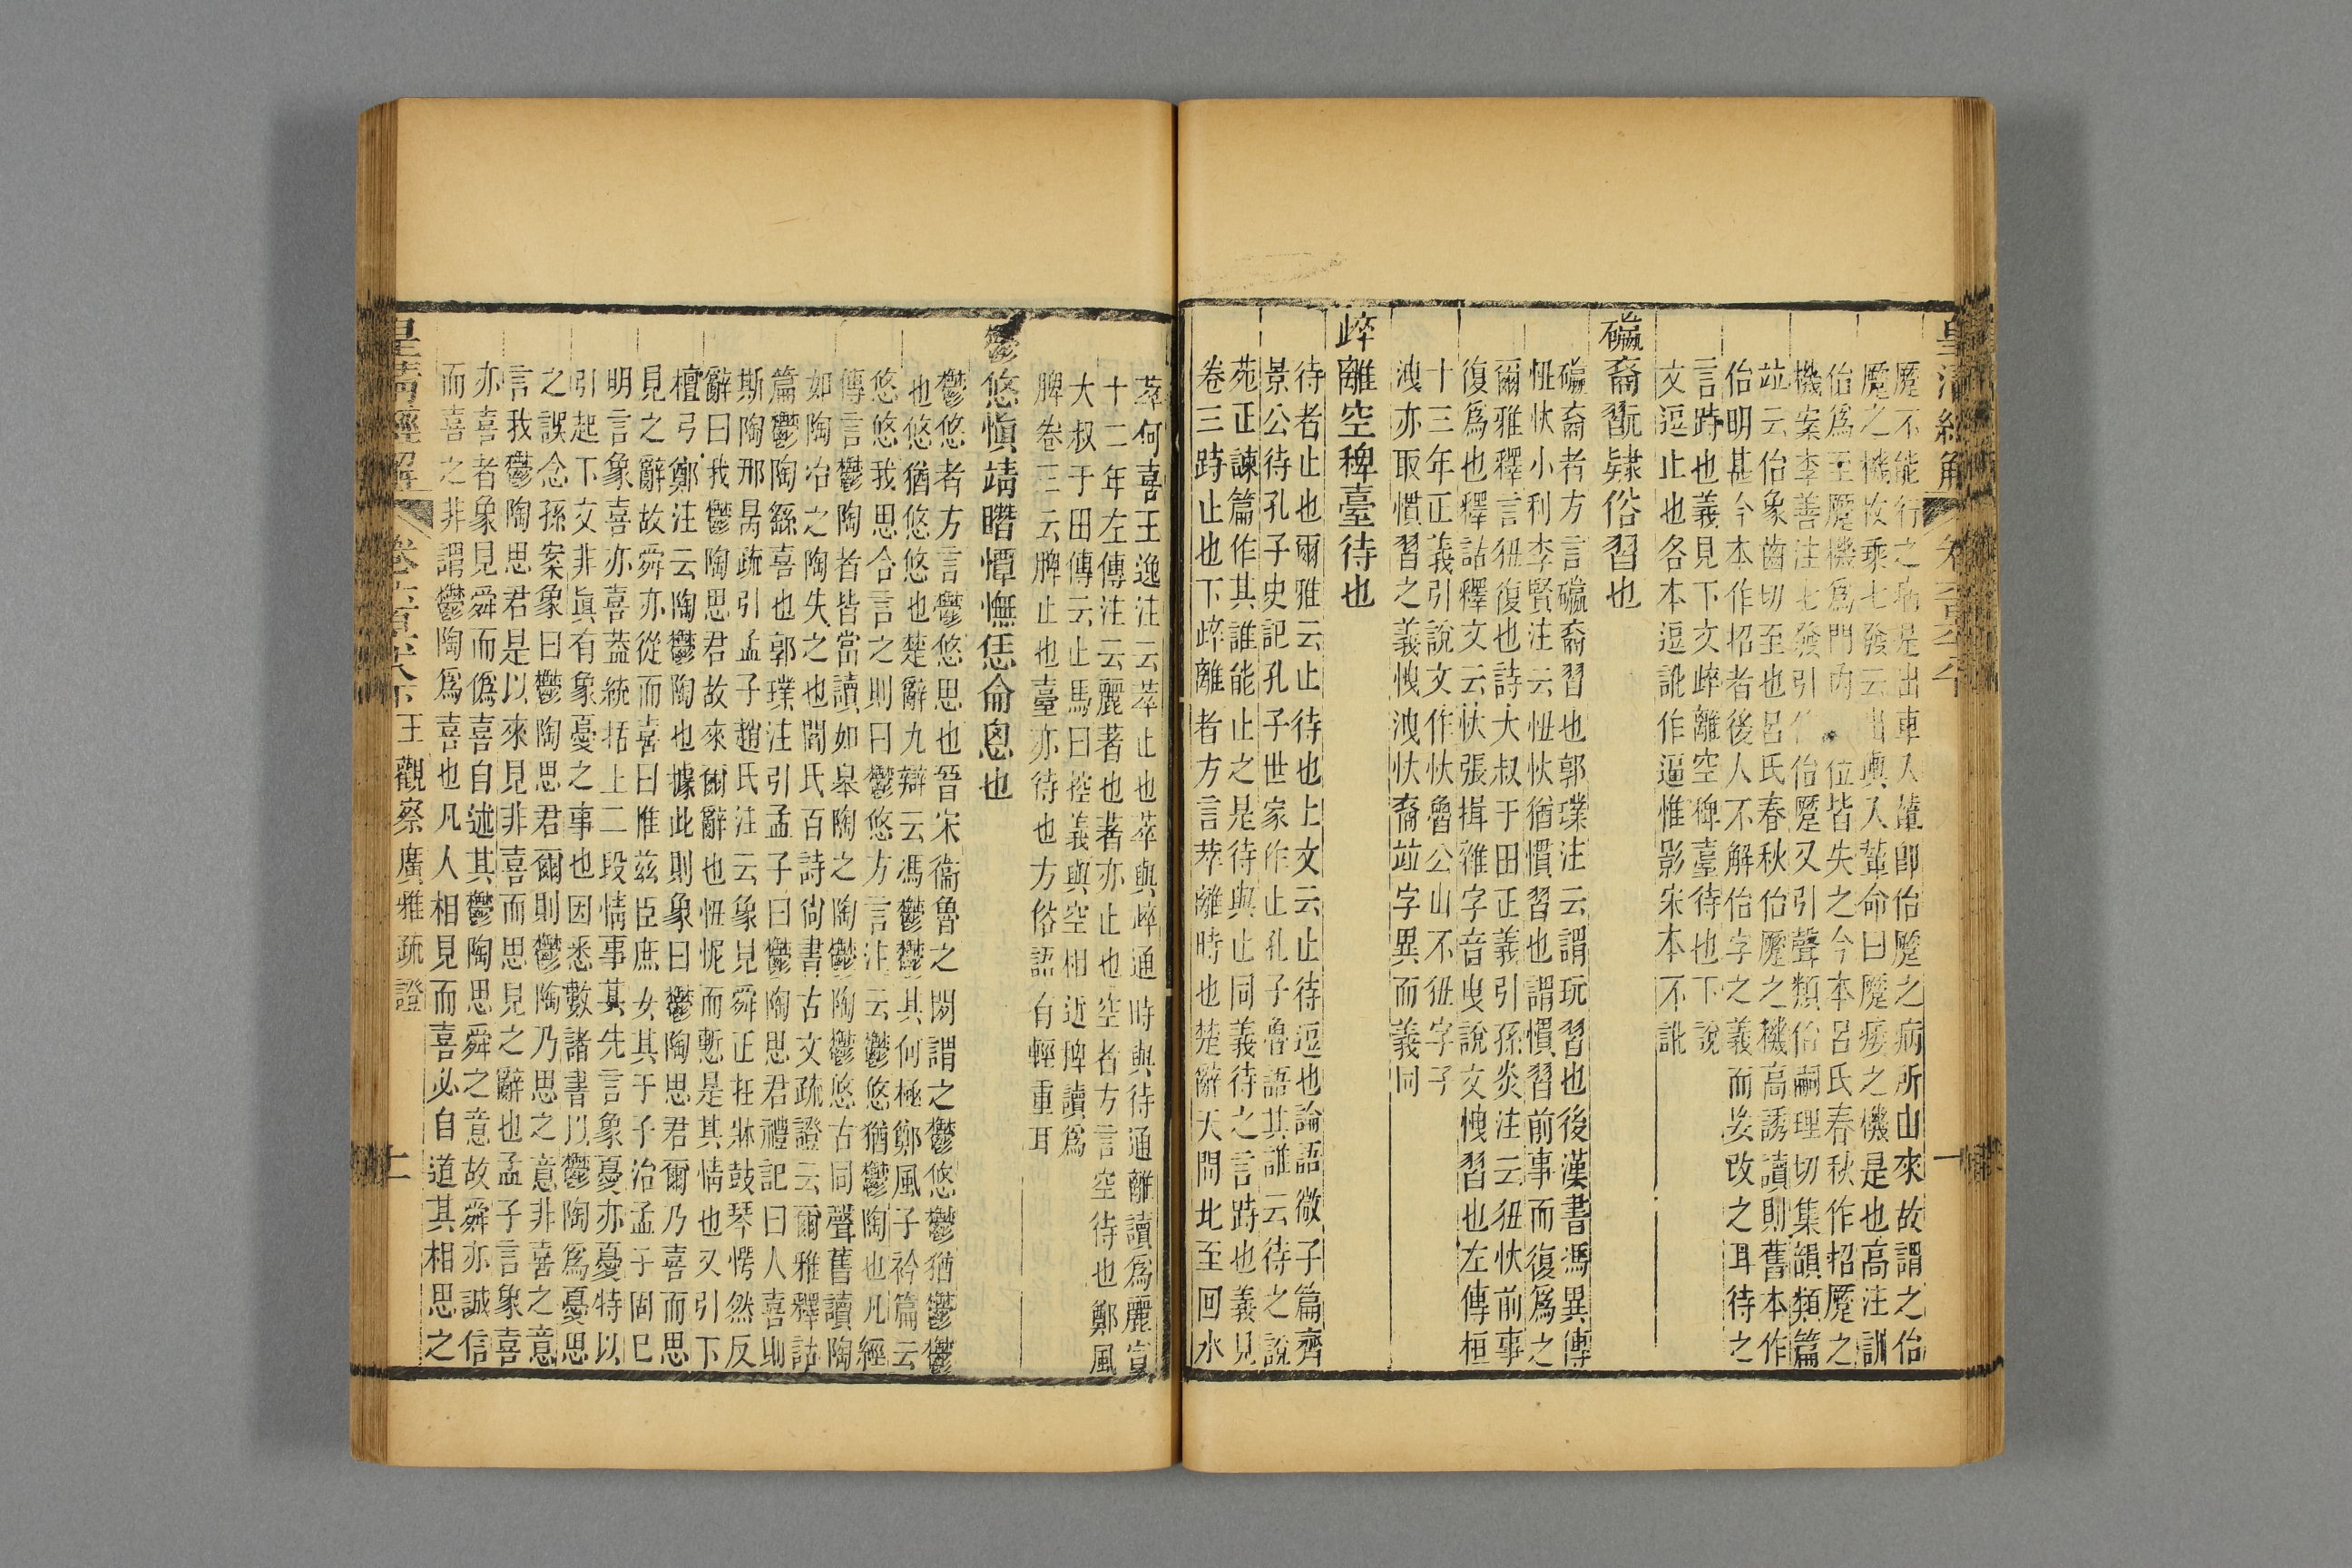 皇淸經解
蹷不能行之
是出車入輦卽佁蹷之病所由來故謂之佁
蹷之機枚乘七發云出輿入輦命曰蹷痿之機是也高注訓
佁爲至蹷機爲門內
位皆失之今本呂氏春秋作招蹷之
機案李善注七發引
佁蹷又引聲類佁嗣理切集韻類篇
竝云佁象齒切至也呂氏春秋佁蹷之機高誘讀則舊本作
佁明甚今本作招者後人不解佁字之義而妄改之耳待之
言跱也義見下文崪離空稗臺待也下說
文逗止也各本逗訛作逼惟影宋本不訛
㔣裔習翫㣈俗習也
㔣裔者方言㔣裔習也郭璞注云謂玩習也後漢書馮異傳
忸忕小利李賢注云忸忕猶慣習也謂慣習前事而復爲之
爾雅釋言狃復也詩大叔于田正義引孫炎注云狃忕前事
復爲也釋詁釋文云忕張揖雜字音曳說文愧習也左傳桓
十三年正義引說文作忕魯公山不狃字子
洩亦取慣習之義愧洩忕裔竝字異而義同
崪離空稗臺待也
待者止也爾雅云止待也上文云止待逗也論語微子篇齊
景公待孔子史記孔子世家作止孔子魯語其誰云待之說
苑正諫篇作其誰能止之是待與止同義待之言跱也義見
卷三跱止也下崪離者方言萃離時也楚辭天問北至回水
萃何喜王逸注云萃止也萃與崪通時與待通離讀爲麗宣
十二年左傳注云麗著也著亦止也空者方言空待也鄭風
大叔于田傳云止馬曰控義與空相近稗讀爲
脾卷三云脾止也臺亦待也方俗語有輕重耳
鬱悠愼靖㬱憛憮恁侖恖也
鬱悠者方言鬱悠思也晉宋衞魯之閒謂之鬱悠鬱猶鬱鬱
也悠猶悠悠也楚辭九辯云馮鬱鬱其何極鄭風子衿篇云
悠悠我思合言之則曰鬱悠方言注云鬱悠猶鬱陶也凡經
傳言鬱陶者皆當讀如皋陶之陶鬱陶鬱悠古同聲舊讀陶
如陶冶之陶失之也閻氏百詩尙書古文疏證云爾雅釋詁
篇鬱陶繇喜也郭璞注引孟子曰鬱陶思君禮記曰人喜則
斯陶邢昺疏引孟子趙氏注云象見舜正在牀鼓琴愕然反
辭曰我鬱陶思君故來爾辭也忸怩而慙是其情也又引下
檀弓鄭注云陶鬱陶也據此則象曰鬱陶思君爾乃喜而思
見之辭故舜亦從而喜曰惟茲臣庶女其于予治孟子固已
明言象喜亦喜蓋統括上二段情事其先言象憂亦憂特以
引起下文非眞有象憂之事也因悉數諸書以鬱陶爲憂思
之誤念孫案象曰鬱陶思君爾則鬱陶乃思之意非喜之意
言我鬱陶思君是以來見非喜而思見之辭也孟子言象喜
亦喜者象見舜而僞喜自述其鬱陶思舜之意故舜亦誠信
而喜之非謂鬱陶爲喜也凡人相見而喜必自道其相思之
皇淸經解
王觀察廣雅疏證